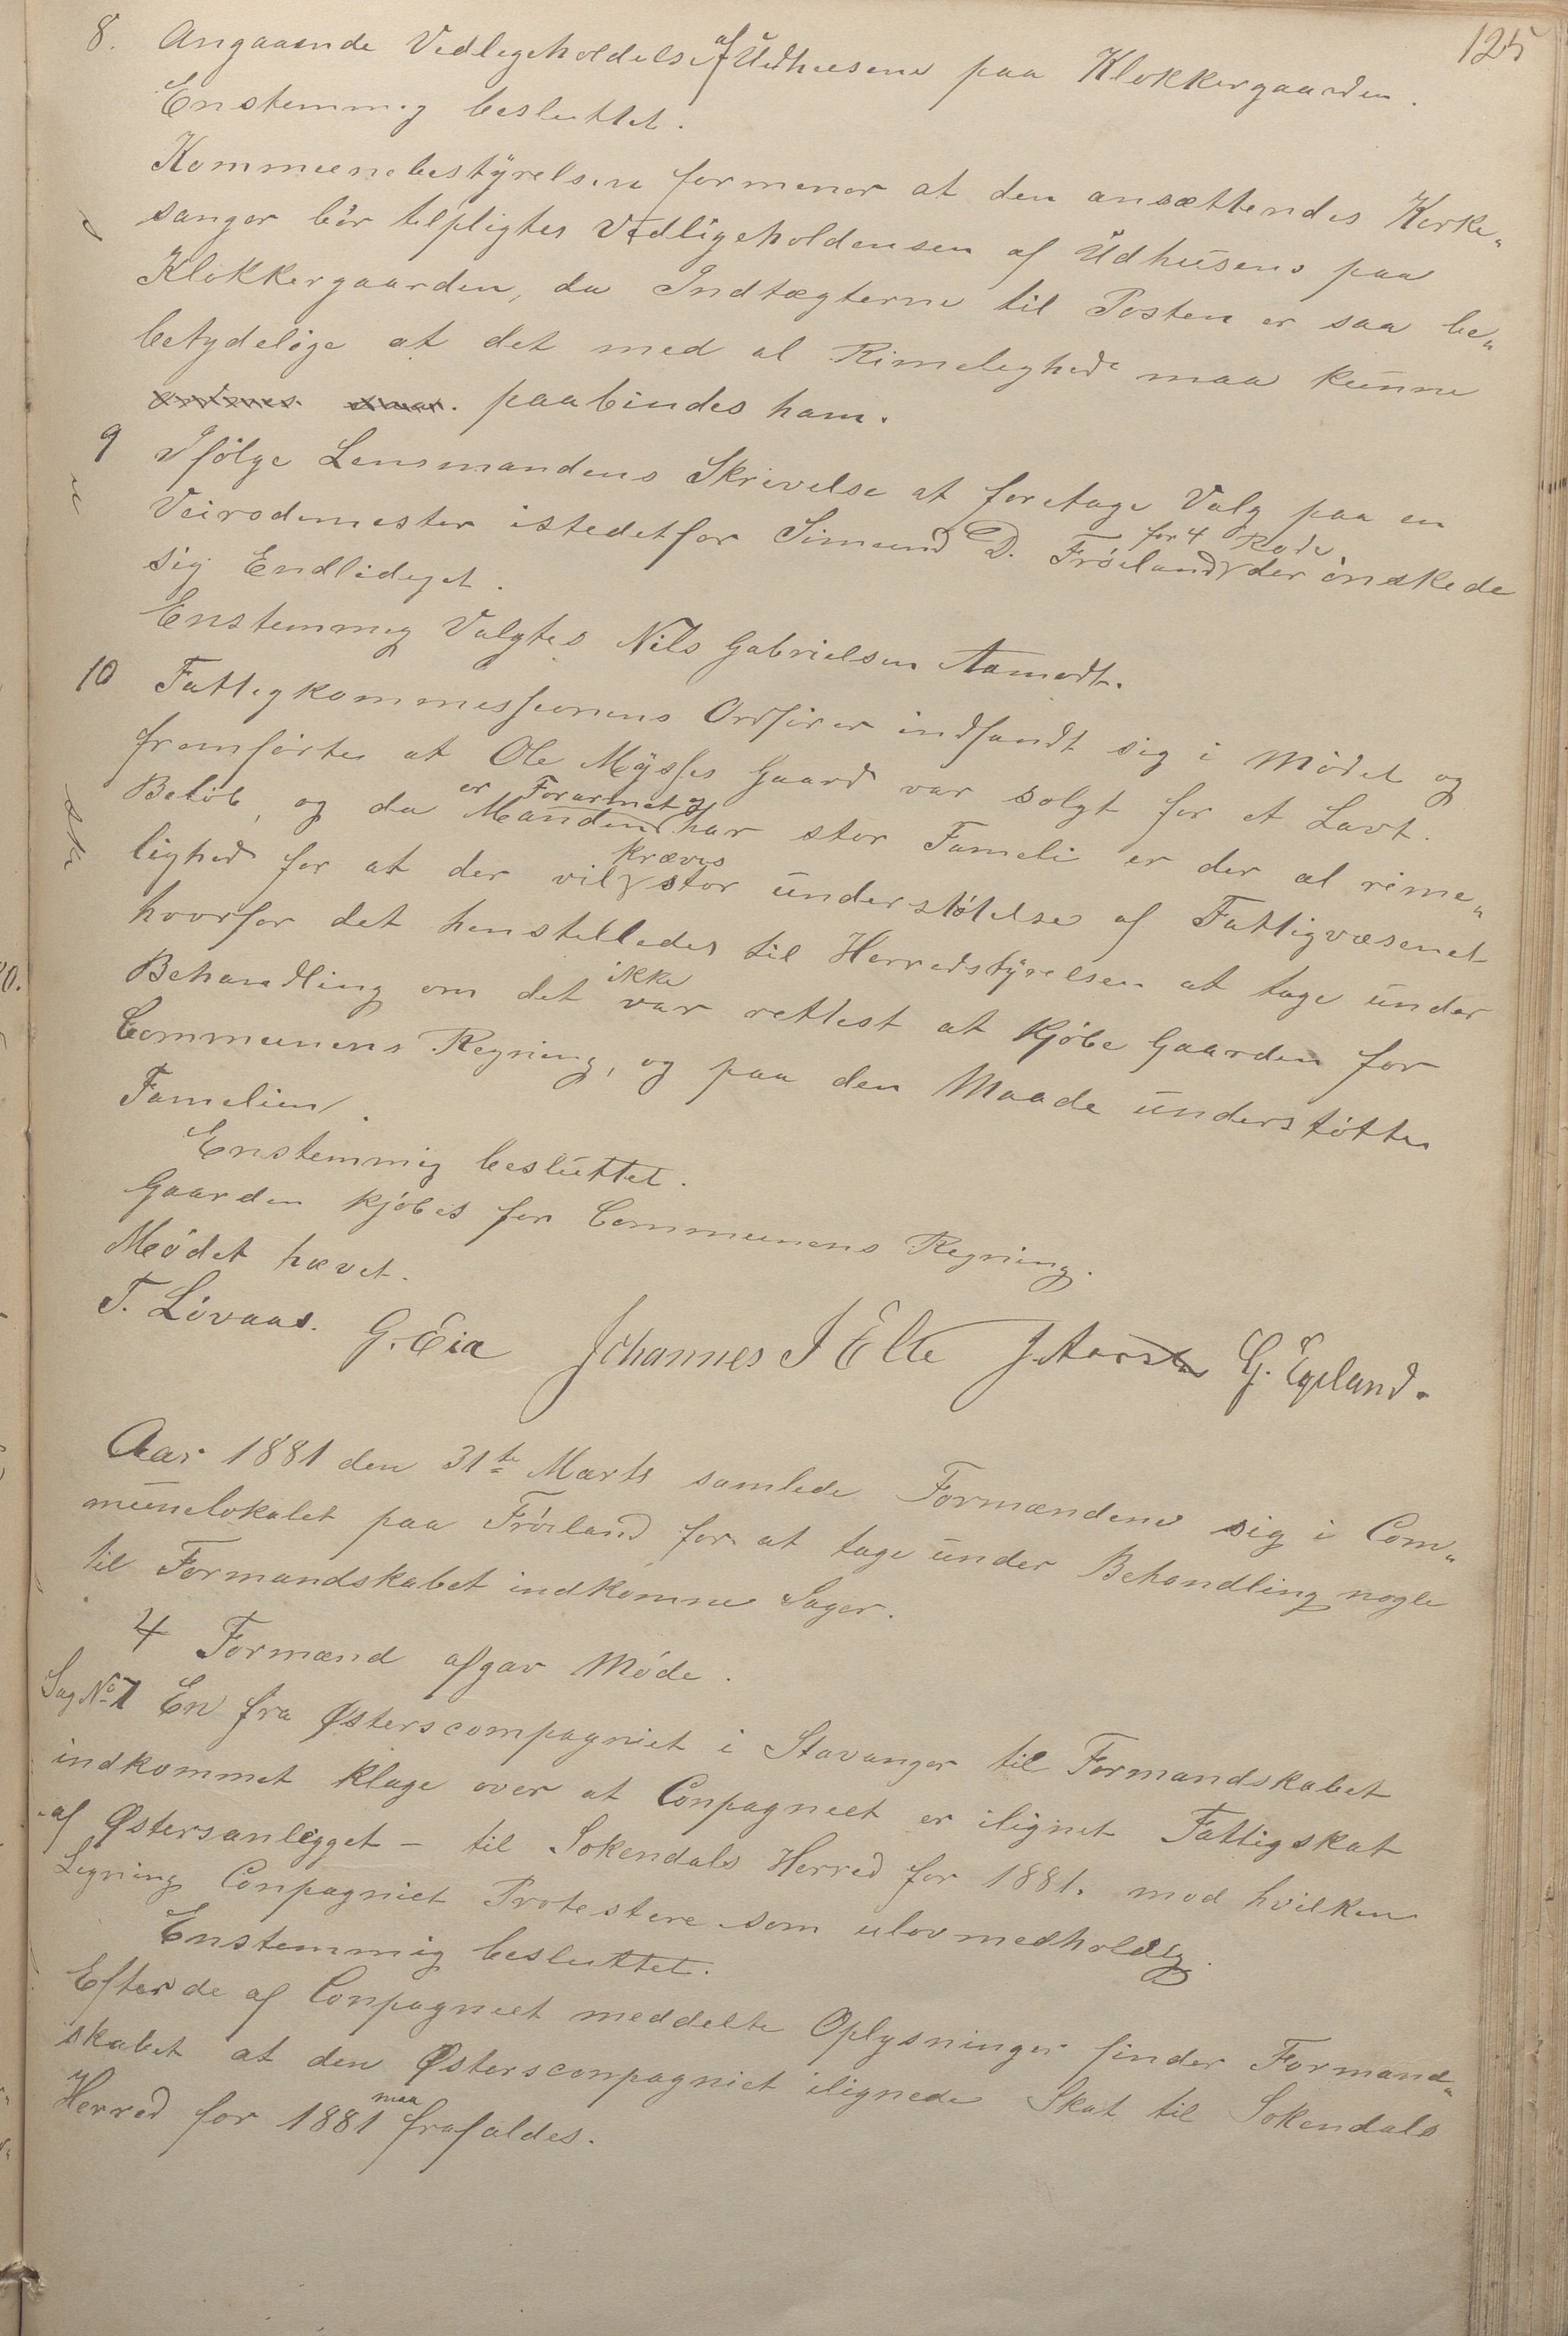 125
8. Angaaende Vedligeholdelse af Udhusene paa Klokkergaarden.
Enstemmig besluttet.
Kommunebestyrelsen formener at den ansættendes Kirke„
sanger bør tilpligtes Vedligeholdensen af Udhusene paa
Klokkergaarden, da Indtægterne til Posten er saa be„
betydelige at det med al Rimelighed maa kunne
paabindes ham.
9 Ifølge Lensmandens Skrivelse at foretage Valg paa en
Veirodemester istedetfor Simund D. Frøiland for 4 Rode der ønskede
sig Endlediget.
Enstemmig Valgtes Nils Gabrielsen Aamodt.
10 Fattigkommissionens Ordfører indfandt sig i Mødet og
fremførte at Ole Mysses Gaard var solgt for et Lavt
Beløb, og da Manden er Forarmet og har stor Fameli er der al rime„
lighed for at der vil kræves stor understøtelse af Fattigvæsenet
hvorfor det henstilledes til Herredstyrelsen at tage under
Behandling om det ikke var rettest at kjøbe Gaarden for
Communens Regning, og paa den Maade understøtte
Famelien.
Enstemmig besluttet.
Gaarden kjøbes for Communens Regning.
Mødet hævet.
T. Løvaas. G. Eia Johannes J Elle J. Aarstad G. Egeland.
Aar 1881 den 31te Marts samlede Formændene sig i Com„
munelokalet paa Frøiland for at tage under Behandling nogle
til Formandskabet indkomne Sager.
4 Formænd afgav Møde.
Sag No 1 En fra Østerscompagniet i Stavanger til Formandskabet
indkommet klage over at Conpagniet er ilignet Fattigskat
af Østersanlegget – til Sokendals Herred for 1881. mod hvilken
Ligning Conpagniet Protestere som ulovmedholdig.
Enstemmig besluttet.
Efter de af Conpagniet meddelte Oplysninger finder Formand„
skabet at den Østersconpagniet ilignede Skat til Sokendals
Herred for 1881 maa frafaldes.